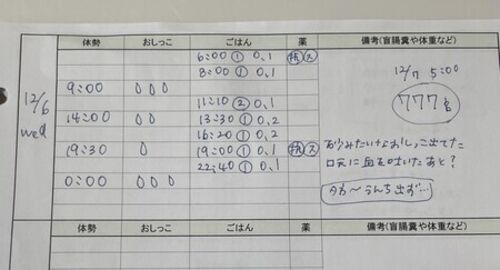 体勢 おしっこ ごはん 薬 備考(盲腸糞や体重など)
12/6 wed
6:00 ① 0.1 抗 ス
8:00 ① 0.1
9:00
11:10 ② 0.1
14:00 13:30 ① 0.2
16:20 ① 0.2
19:30 19:00 ① 0.1 抗 ス
22:40 ① 0.1
0:00
12/7 5:00
777g
お砂みたいなおしっこ出てた
口元に血を吐いたあと?
うんち出ず…
体勢 おしっこ ごはん 薬 備考(盲腸糞や体重など)